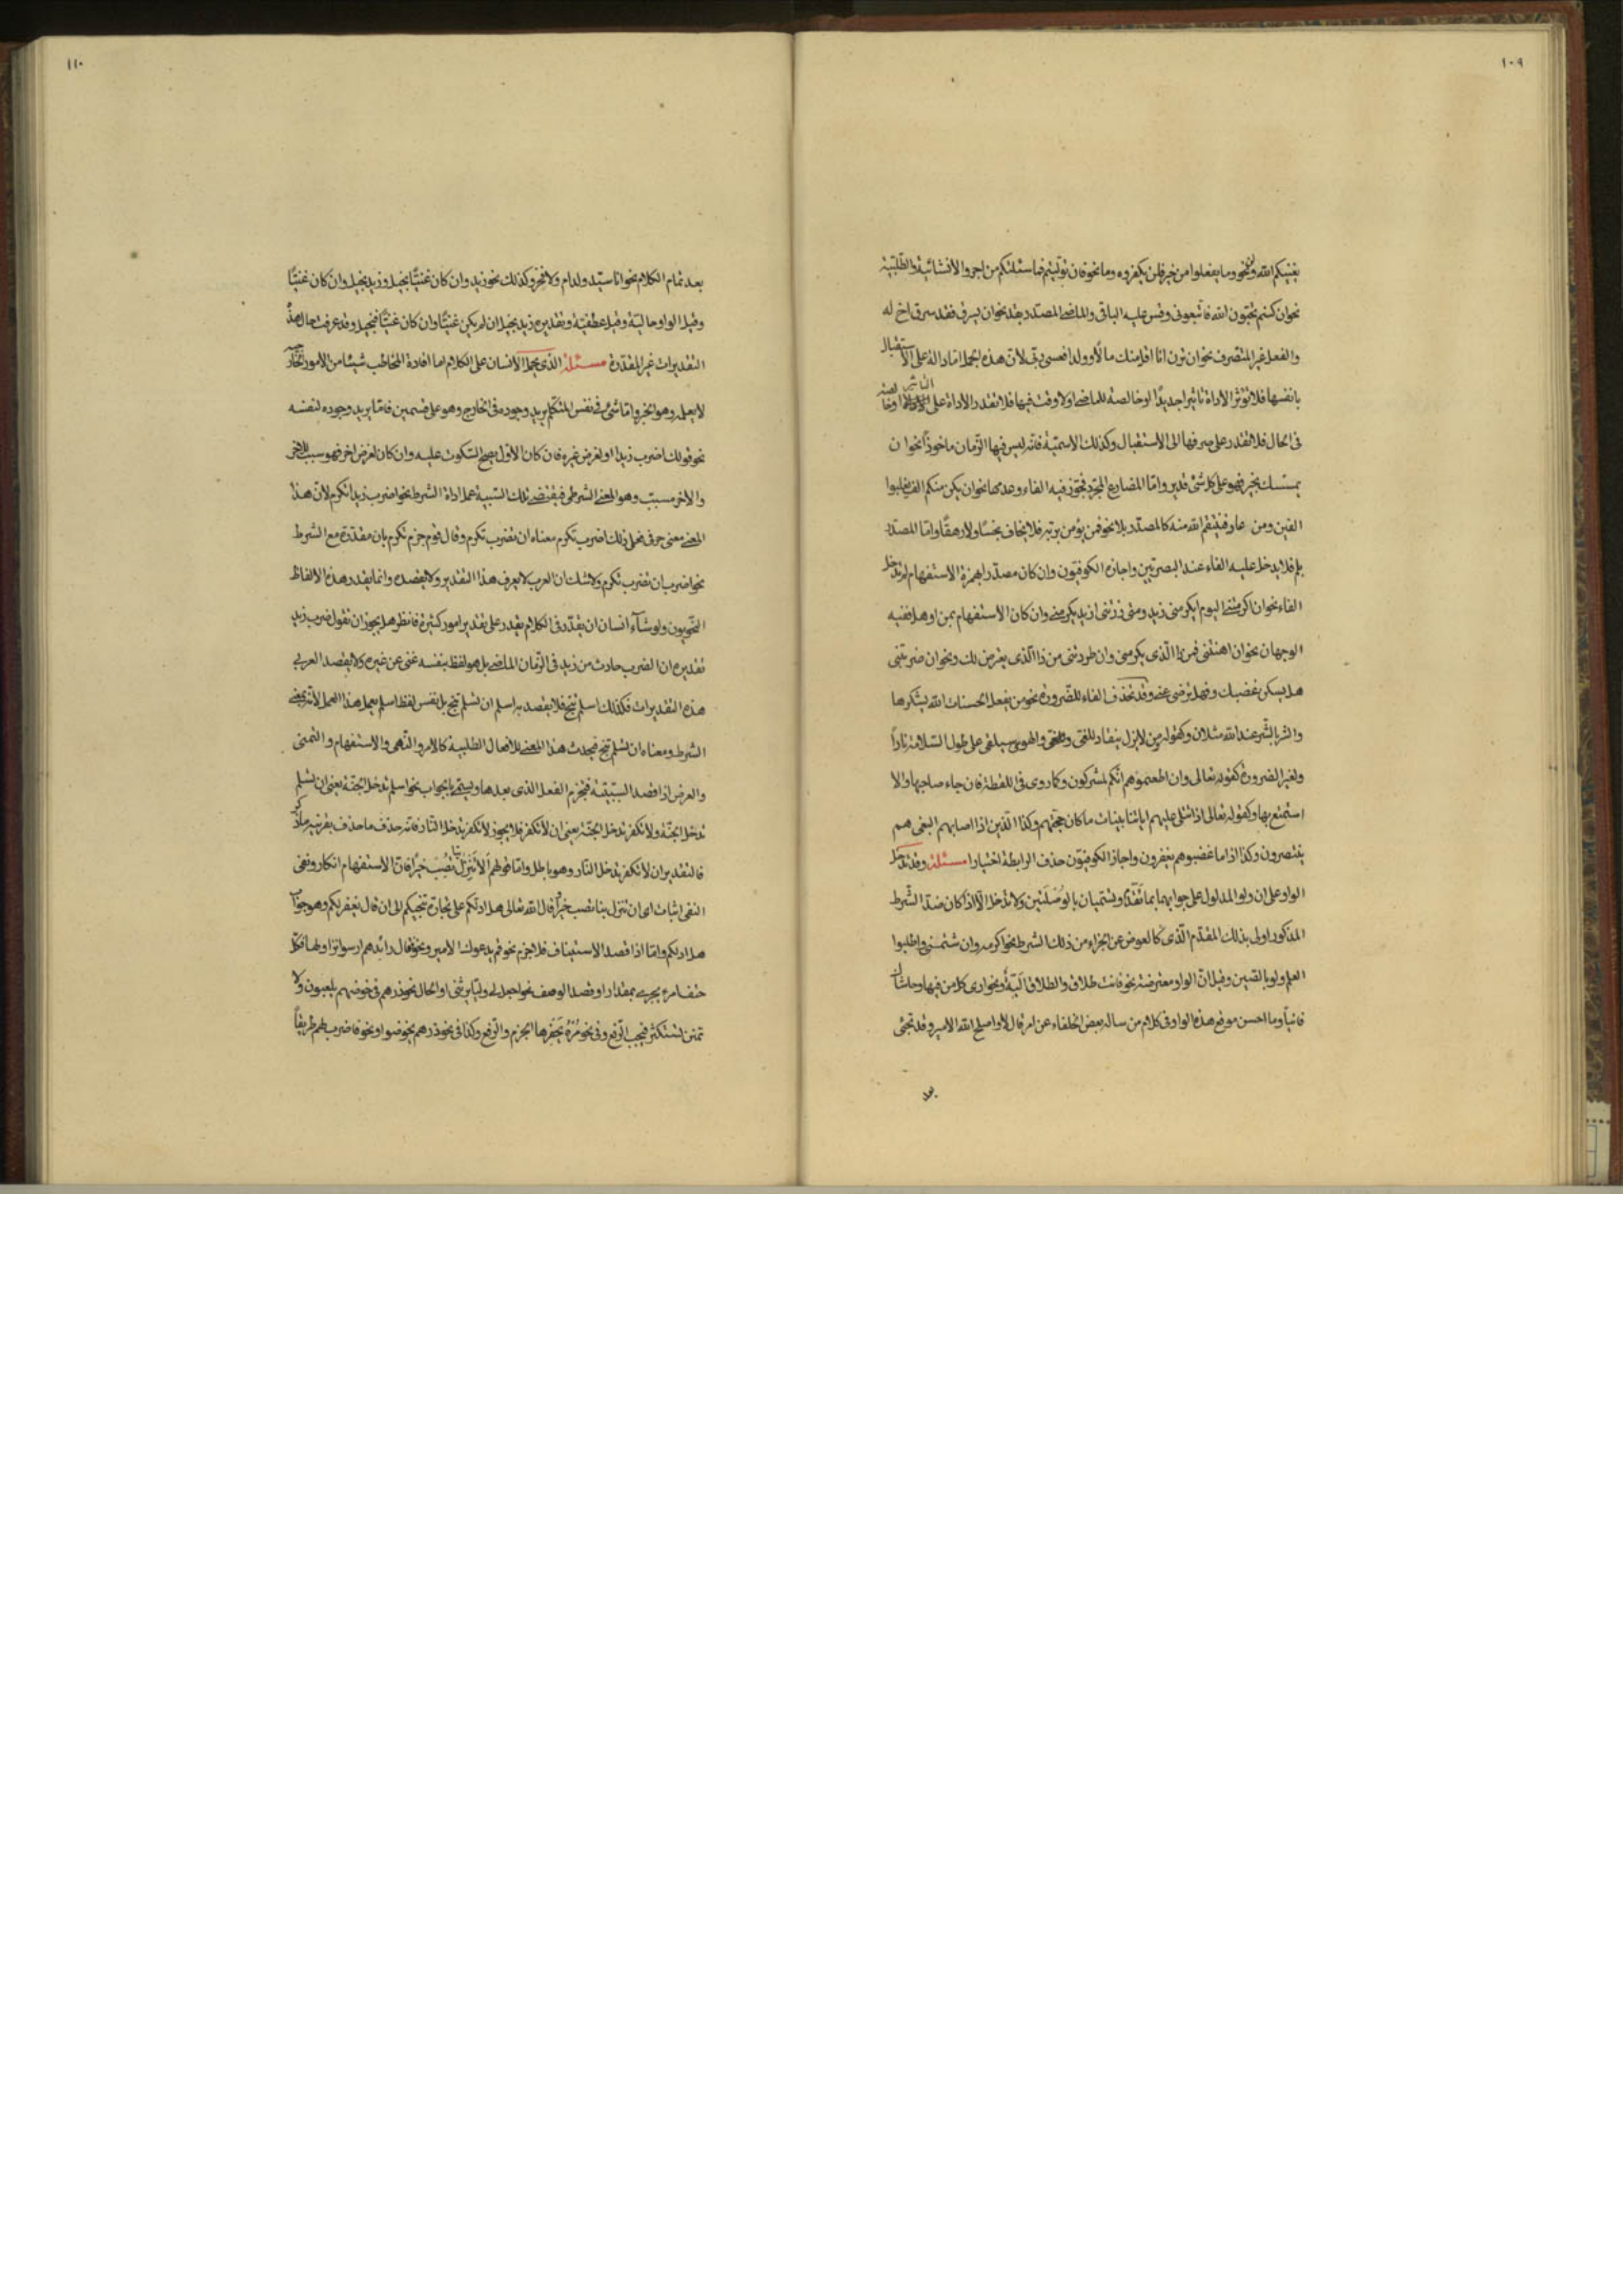 ١٠٩
يغنيكم الله ونحو وما يفعلوا من خير فلن يكفروه وما نحو فان توليتم فما سئلتكم من اجر والانشائية والطلبية
نحو ان كنتم تحبون الله فاتبعونى وقس عليه الباقى والماضى المصدر بقد نحو ان يسرق فقد سرق اخ له
والفعل غير المتصرف نحو ان ترن انا اقل منك مالا وولدا فعسى ربى لان هذه الجمل اما دالة على الاستقبال
بانفسها فلا تؤثر الاداة تاثيرا جديدا او خالصة للماضى اولا وقت فيها فلا تقدر الاداة على
فى الحال فلا تقدر على صرفها الى الاستقبال وكذلك الاسمية فانه ليس فيها الزمان ماخوذا نحو ان
يمسسك بخير فهو على كل شئ قدير واما المضارع المجرد فتجوز فيه الفاء وعدمها نحو ان يكن منكم الف يغلبوا
الفين ومن عاد فينتقم الله منه كالمصدر بلا نحو فمن يؤمن بربه فلا يخاف بخسا ولا رهقا واما المصدر
بلم فلا يدخل عليه الفاء عند البصريين واجازه الكوفيون وان كان مصدرا بهمزة الاستفهام لم تدخل
الفاء نحو ان اكرمتنى اليوم ايكرمنى زيد ومتى زرتنى ازيد يكرمنى وان كان الاستفهام بمن او هل ففيه
الوجهان نحو ان اهنتنى فمن ذا الذى يكرمنى وان طردتنى من ذا الذى يعرض لك ونحو ان ضربتنى
هل يسكن غضبك وفهل ترضى عنه وقد تحذف الفاء للضرورة نحو من يفعل الحسنات الله يشكرها
والشر بالشر عند الله مثلان وكقوله من لا يزل ينقاد للغى والهوى سيلفى على طول السلامة نادما
ولغير الضرورة كقوله تعالى وان اطعتموهم انكم لمشركون وكما روى فى اللقطة فان جاء صاحبها والا
استمتع بها وكقوله تعالى اذا تتلى عليهم اياتنا بينات ما كان حجتهم وكذا الذين اذا اصابهم البغى هم
ينتصرون وكذا اذا ما غضبوا هم يغفرون واجاز الكوفيون حذف الرابطة اختيارا مسئلة وقد تدخل
الواو على ان ولو المدلول على جوابهما بما تقدم ويسميان بالوصليتين ولا تدخل الا اذا كان ضد الشرط
المذكور اولى بذلك المقدم الذى كالعوض عن الجزاء من ذلك الشرط نحو اكرمه وان شتمنى واطلبوا
العلم ولو بالصين وقيل ان الواو معترضة نحو فانت طلاق والطلاق الية ونحو ارى كل من فيها وحاشاك
فانيا وما احسن موقع هذه الواو فى كلام من ساله بعض الخلفاء عن امر قال لا واصلح الله الامير وقد تجئ
١١٠
بعد تمام الكلام نحو انا سيد ولد ادم ولا فخر وكذلك نحو زيد وان كان غنيا بخيل وزيد بخيل وان كان غنيا
وقيل الواو حالية وقيل عطفية وتقديره زيد بخيل ان لم يكن غنيا وان كان غنيا فبخيل وقد عرفت حال هذه
التقديرات غير المقدرة مسئلة الذى يحمل الانسان على الكلام اما افادة المخاطب شيئا من الامور الخارجية
لا يعلمه وهو الخبر واما شئ فى نفس المتكلم يريد وجوده فى الخارج وهو على قسمين فاما يريد وجوده لنفسه
نحو قولك اضرب زيدا او لغرض غيره فان كان الاول يصح السكوت عليه وان كان لغرض اخر فهو سبب للاخر
والاخر مسبب وهو المعنى الشرطى فيقتضى تلك السببية عمل اداة الشرط نحو اضرب زيدا تكرم لان هذا
المعنى معنى حرفى نحل ذلك اضرب تكرم معناه ان تضرب تكرم وقال قوم جزم تكرم بان مقدرة مع الشرط
نحو اضرب ان تضرب تكرم ولا شك ان العرب لا يعرف هذا التقدير ولا يقصده وانما يقدر هذه الالفاظ
النحويون ولو شاء انسان ان يقدر فى الكلام يقدر على تقدير امور كثيرة فانظر هل يجوز ان تقول ضرب زيد
تقديره ان الضرب حادث من زيد فى الزمان الماضى بل هو لفظ بنفسه غنى عن غيره ولا يقصد العربى
هذه التقديرات فكذلك اسلم تنج فلا يقصد به اسلم ان تسلم تنج بل نفس لفظ اسلم يعمل هذا العمل لانه بمعنى
الشرط ومعناه ان تسلم تنج فيحدث هذا المعنى للافعال الطلبية كالامر والنهى والاستفهام والتمنى
والعرض اذا قصد السببية فتجزم الفعل الذى بعدها ويسمى بالجواب نحو اسلم تدخل الجنة يعنى ان تسلم
تدخل الجنة ولا تكفر تدخل الجنة يعنى ان لا تكفر فلا يجوز لا تكفر تدخل النار فانه حذف ما حذف بقرينة ما ذكر
فالتقدير ان لا تكفر تدخل النار وهو باطل واما قولهم الا تنزل بنا تصب خيرا فان الاستفهام انكار ونفى
النفى اثبات اى ان تنزل بنا تصب خيرا قال الله تعالى هل ادلكم على تجارة تنجيكم الى ان قال يغفر لكم وهو جواب
هل ادلكم واما اذا قصد الاستيناف فلا جزم نحو قم يدعوك الامير ونحو قال رائدهم ارسوا نزاولها فكل
حتف امرء يجرى بمقدار او قصد الوصف نحو اجعل لى وليا يرثنى او الحال نحو ذرهم فى خوضهم يلعبون ولا
تمنن تستكثر فيجب الرفع وفى نحو مره يحفرها الجزم والرفع وكذا فى نحو ذرهم يخوضوا ونحو فاضرب لهم طريقا